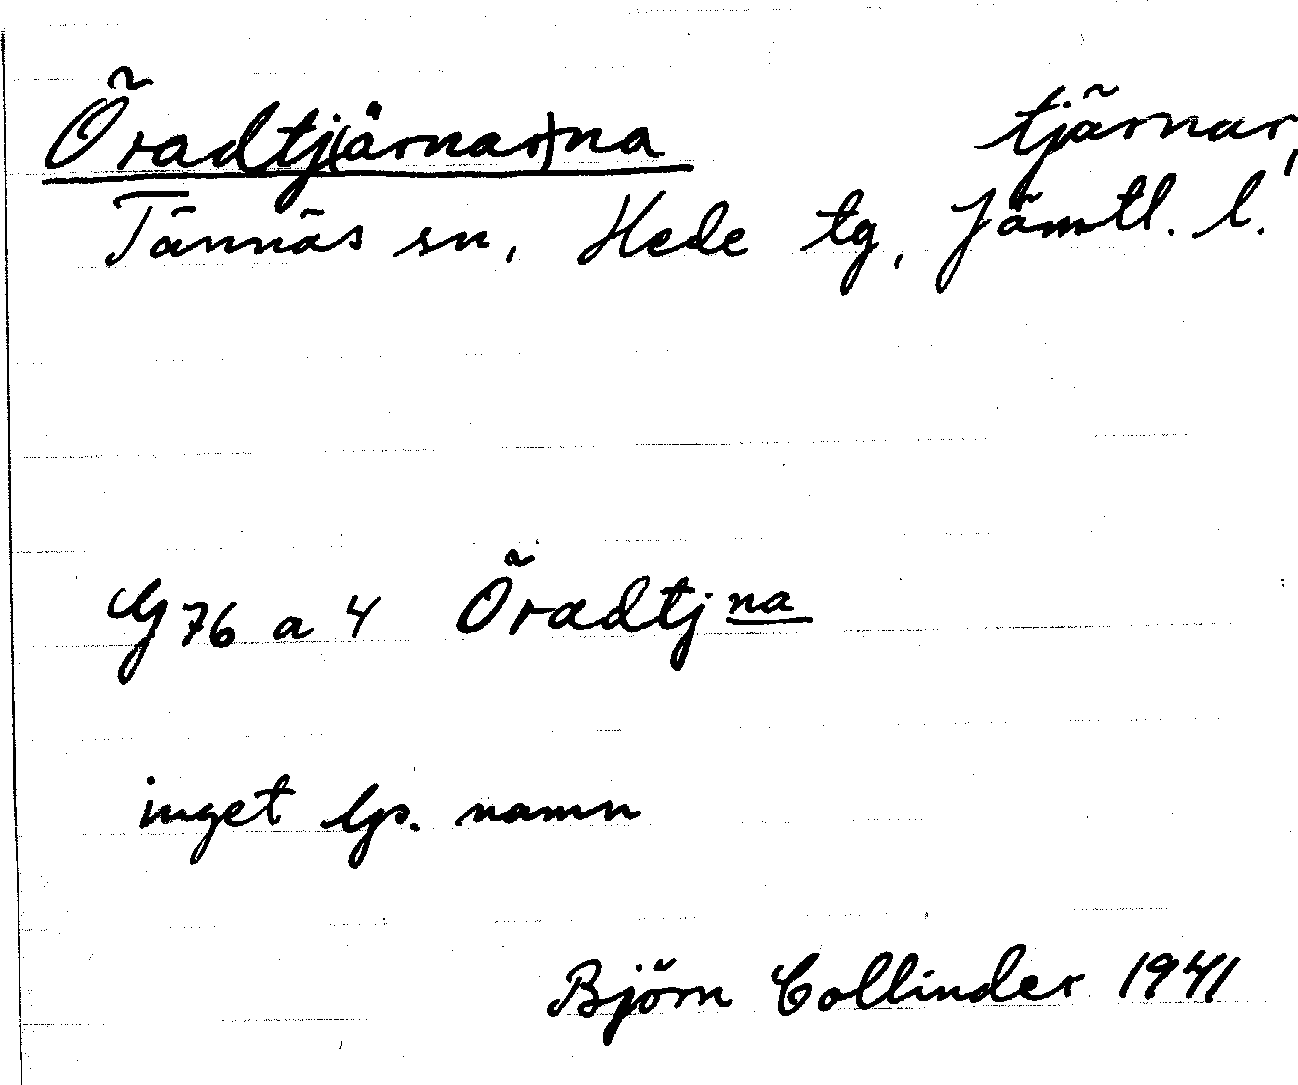 Öradtj(ärnar)na tjärnar,
Tännäs sn, Hede tg, Jämtl. l.
G 76 a 4 Öradtjna
inget lp. namn
Björn Collinder 1941